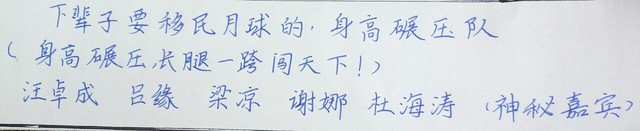 下辈子要移民月球的，身高碾压队
（身高碾压，长腿一跨闯天下！）
汪卓成 吕缘 梁凉 谢娜 杜海涛（神秘嘉宾）